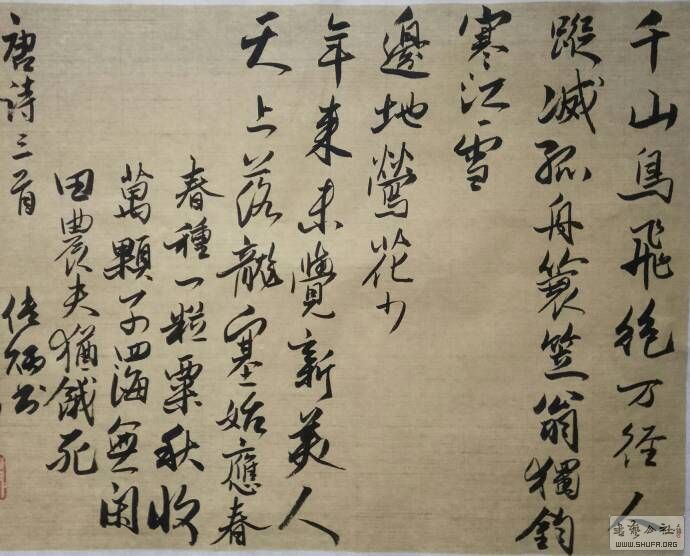 千山鳥飛絶万径人
蹤滅孤舟簑笠翁獨釣
寒江雪
邊地鶯花少
年來未覺新美人
天上落龍塞始應春
春種一粒粟秋收
萬顆子四海無閑
田農夫猶餓死
唐詩三首
書
書藝公社
WWW.SHUFA.ORG